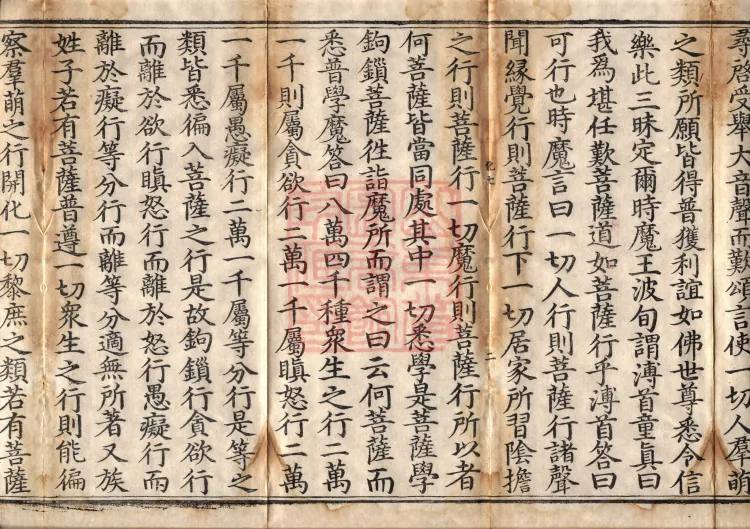 尋啓受舉大音聲而歎頌言使一切人羣萌
之類所願皆得普獲利誼如佛世尊悉令信
樂此三昧定爾時魔王波旬謂溥首童真曰
我爲堪任歎菩薩道如菩薩行乎溥首答曰
可行也時魔言曰一切人行則菩薩行諸聲
聞縁覺行則菩薩行下一切居家所習陰擔
之行則菩薩行一切魔行則菩薩行所以者
何菩薩皆當同處其中一切悉學是菩薩學
鉤鎖菩薩徃詣魔所而謂之曰云何菩薩而
悉普學魔答曰八萬四千種衆生之行二萬
一千則屬貪欲行二萬一千屬瞋怒行二萬
一千屬愚癡行二萬一千屬等分行是等之
類皆悉徧入菩薩之行是故鉤鎖行貪欲行
而離於欲行瞋怒行而離於怒行愚癡行而
離於癡行等分行而離等分適無所著又族
姓子若有菩薩普遵一切衆生之行則能徧
察羣萌之行開化一切黎庶之類若有菩薩